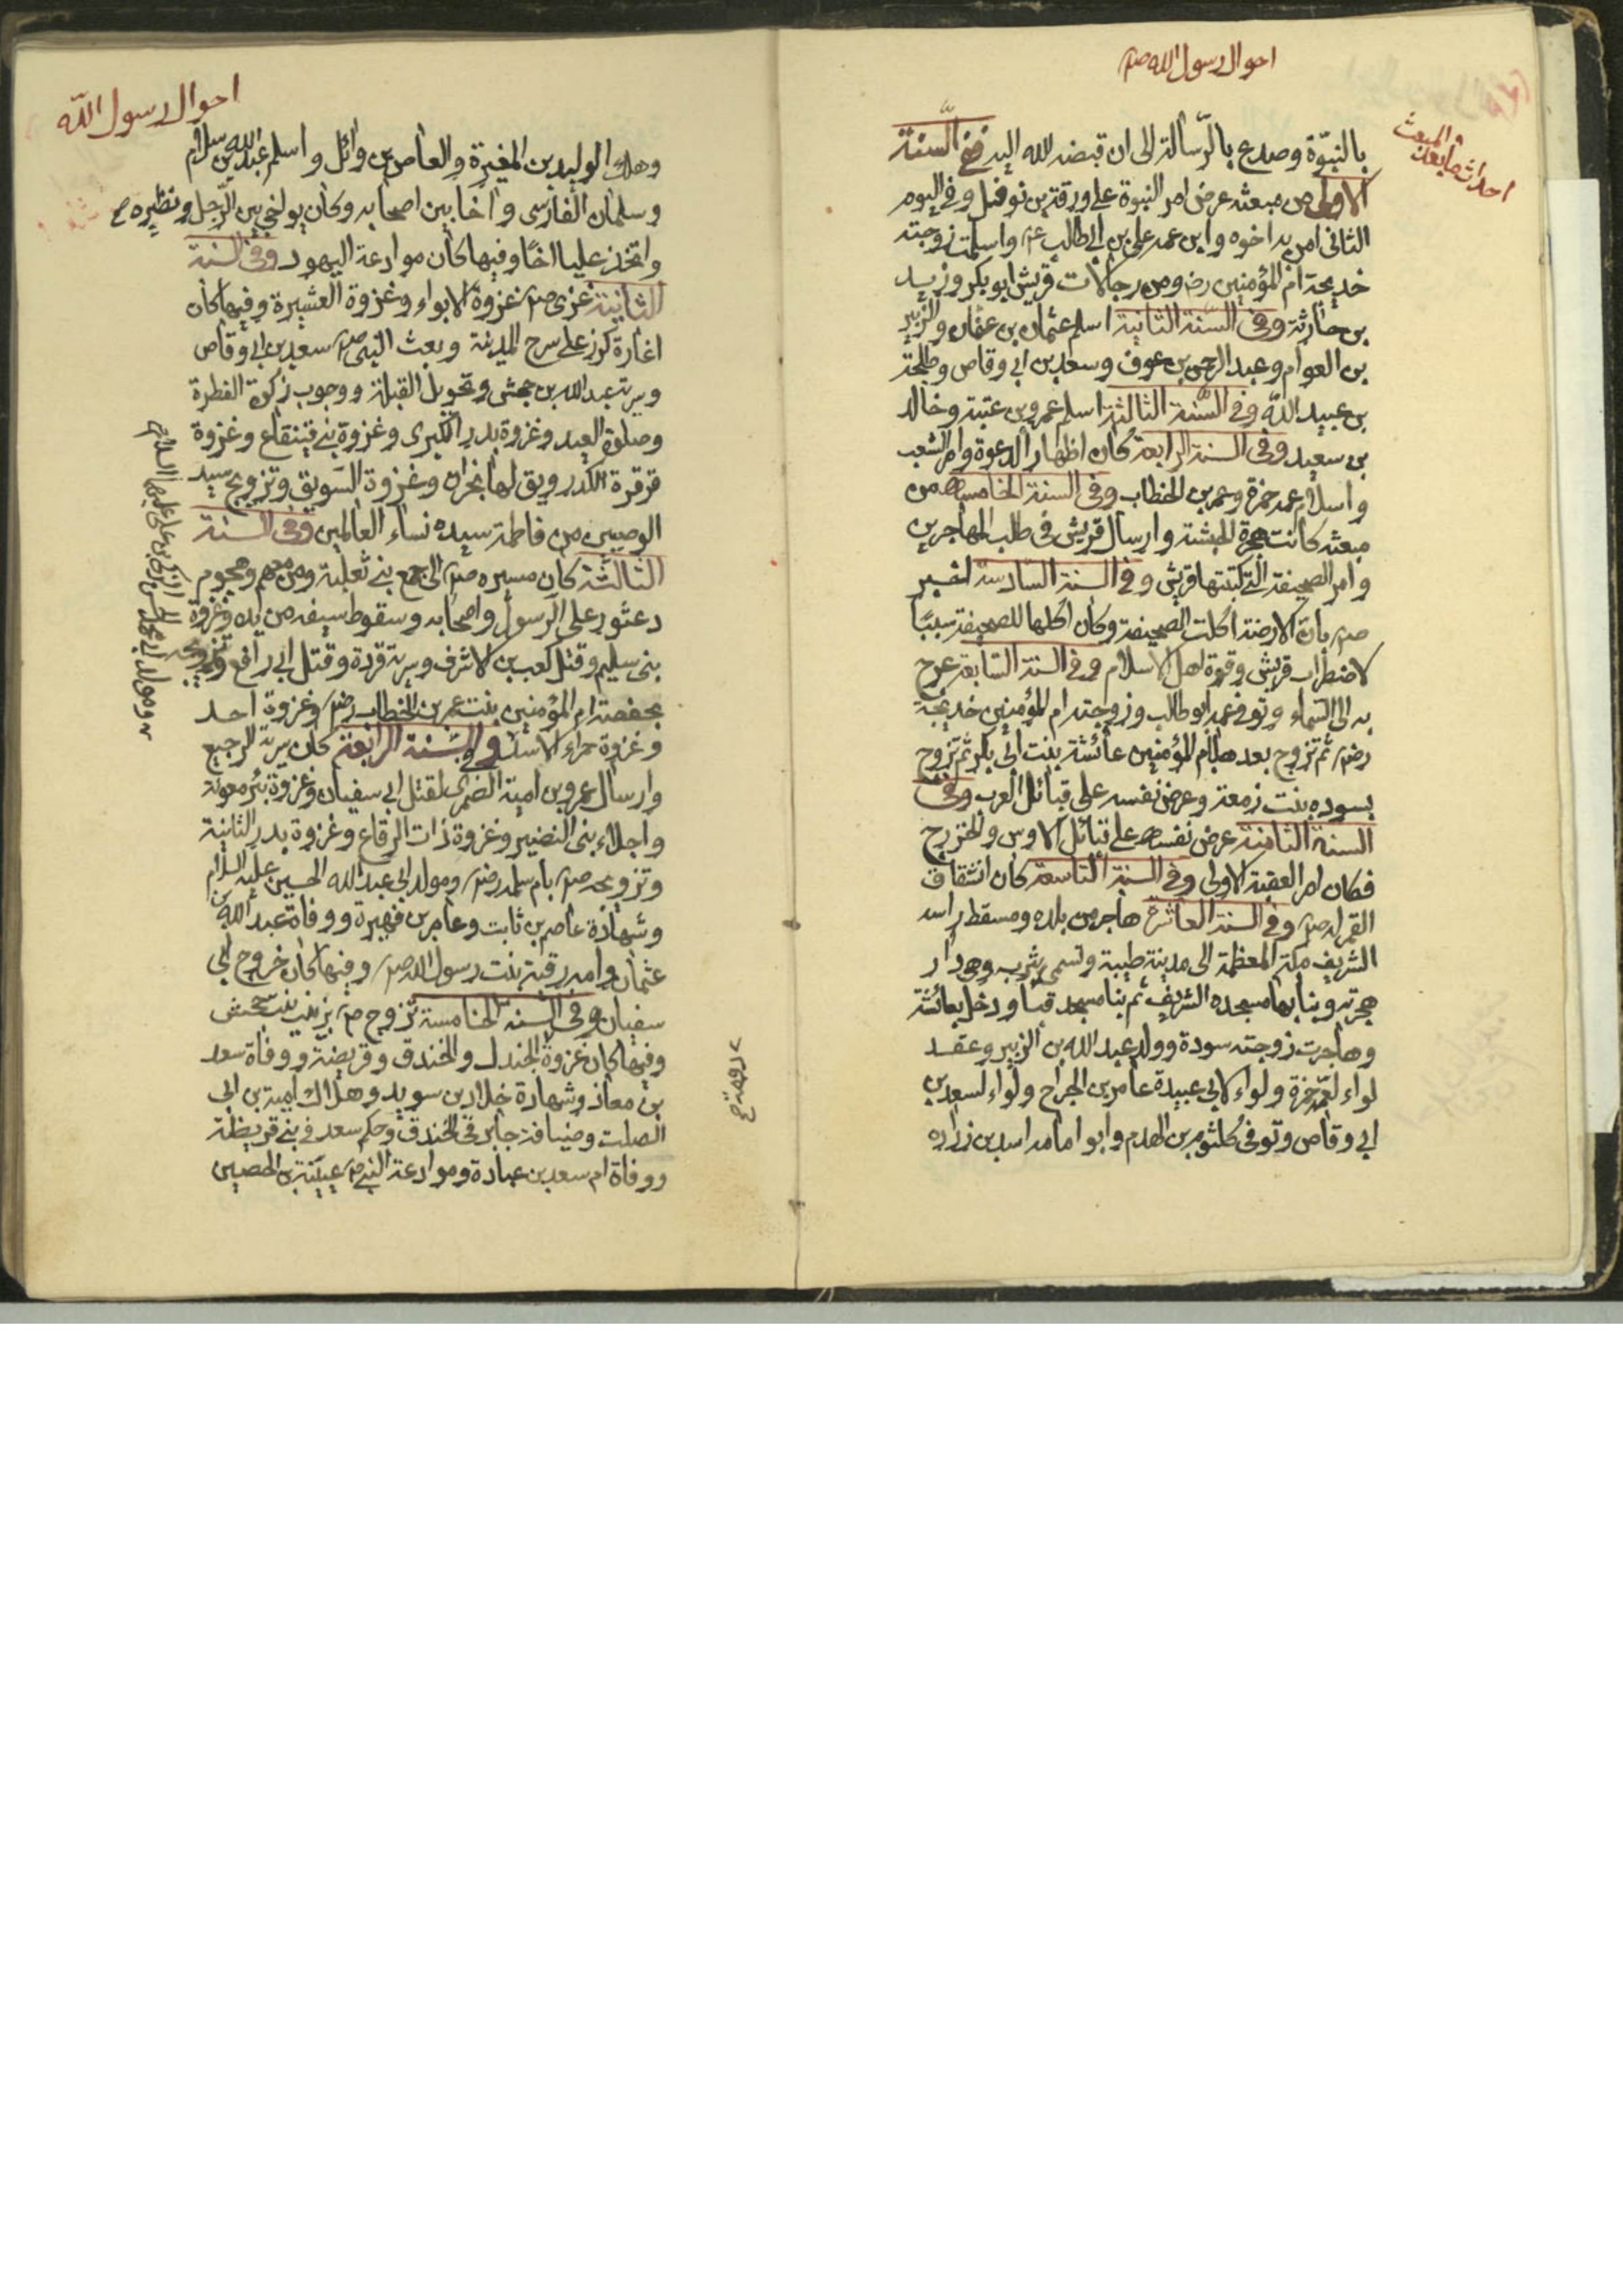 احوال رسول الله صم
احداث مابعد المبعث
بالنبوّة وصدع بالرّسالة الى ان قبضه الله اليه ففى السّنة
الاولى من مبعثه عرض امر النبوة على ورقة بن نوفل وفى اليوم
الثانى امن به اخوه وابن عمه على بن ابى طالب عم واسلمت زوجته
خديجة ام المؤمنين رضم ومن رجالات قريش ابو بكر وزيد
بن حارثة وفى السنة الثانية اسلم عثمان بن عفان والزبير
بن العوام وعبد الرحمن بن عوف وسعد بن ابى وقاص وطلحة
بن عبيد الله وفى السّنة الثالثة اسلم عمرو بن عتبة وخالد
بن سعيد وفى السنة الرابعة كان اظهار الدعوة وامر الشعب
واسلام عمه حمزة وعمر بن الخطاب وفى السنة الخامسه من
مبعثه كانت هجرة الحبشة وارسال قريش فى طلب المهاجرين
وامر الصحيفة التى كتبتها قريش وفى السنة السادسة اخبر
صم بان الارضة اكلت الصحيفة وكان اكلها للصحيفة سببًا
لاضطراب قريش وقوة لاهل الاسلام وفى السنة السابعة عرج
به الى السماء وتوفى عمه ابو طالب وزوجته ام المؤمنين خديجة
رضم ثم تزوج بعدها بام المؤمنين عائشة بنت ابى بكر ثم تزوج
بسوده بنت زمعة وعرض نفسه على قبائل العرب وفى
السنة الثامنة عرض نفسه على قبائل الاوس والخزرج
فكان امر العقبة الاولى وفى السنة التاسعة كان انشقاق
القمر له صم وفى السنة العاشرة هاجر من بلده ومسقط راسه
الشريف مكة المعظمة الى مدينة طيبة وتسمى يثرب وهى دار
هجرته وبنا بها مسجده الشريف ثم بنا مسجد قبا ودخل بعائشة
وهاجرت زوجته سودة وولد عبد الله بن الزبير وعقد
لواء لعمّه حمزة ولواء لابى عبيدة عامر بن الجراح ولواء لسعد بن
ابى وقاص وتوفى كلثوم بن الهدم وابو امامه اسد بن زراره
احوال رسول الله
وهلك الوليد بن المغيرة والعاص بن وائل واسلم عبد الله بن سلام
وسلمان الفارسى واخا بين اصحابه وكان يواخى بين الرّجل ونظيره
واتخذ عليا اخًا وفيها كان موادعة اليهود وفى السنة
الثانية غزى صم غزوة الابواء وغزوة العشيرة وفيها كان
اغارة كرز على سرح المدينة وبعث النبى صم سعد بن ابى وقاص
وسرية عبد الله بن جحش وتحويل القبلة ووجوب زكوة الفطرة
وصلوة العيد وغزوة بدر الكبرى وغزوة بنى قينقاع وغزوة
قرقرة الكدر ويق لها بحران وغزوة السّويق وتزويج سيد
الوصيين من فاطمة سيده نساء العالمين وفى السنة
الثالثة كان مسيره صم الى جمع بنى ثعلبة ومن معهم وهجوم
دعثور على الرسول واصحابه وسقوط سيفه من يده وغزوة
بنى سليم وقتل كعب بن الاشرف وسرية قردة وقتل ابى رافع وتزويجه
بحفصة ام المؤمنين بنت عمر بن الخطاب رضم وغزوة احد
وغزوة حمراء الاسد وفى السّنة الرابعة كان سرية الرجيع
وارسال عمرو بن امية الضمرى لقتل ابى سفيان وغزوة بئر معونة
واجلاء بنى النضير وغزوة ذات الرقاع وغزوة بدر الثانية
وتزويجه صم بام سلمه رضم ومولد ابى عبد الله الحسين عليه السلام
وشهادة عاصم بن ثابت وعامر بن فهيرة ووفاة عبد الله بن
عثمان وامه رقية بنت رسول الله صم وفيها كان خروج ابى
سفيان وفى السنة الخامسة تزوج صم بزينب بنت جحش
وفيها كان غزوة الجندل والخندق وقريضة ووفاة سعد
بن معاذ وشهادة خلاد بن سويد وهلاك امية بن ابى
الصلت وضيافة جابر فى الخندق وحكم سعد فى بنى قريظة
ووفاة ام سعد بن عبادة وموادعة النبى صم عيينة بن الحصين
ومولد ابى محمد الحسن الزكى بن على عليهما السلام